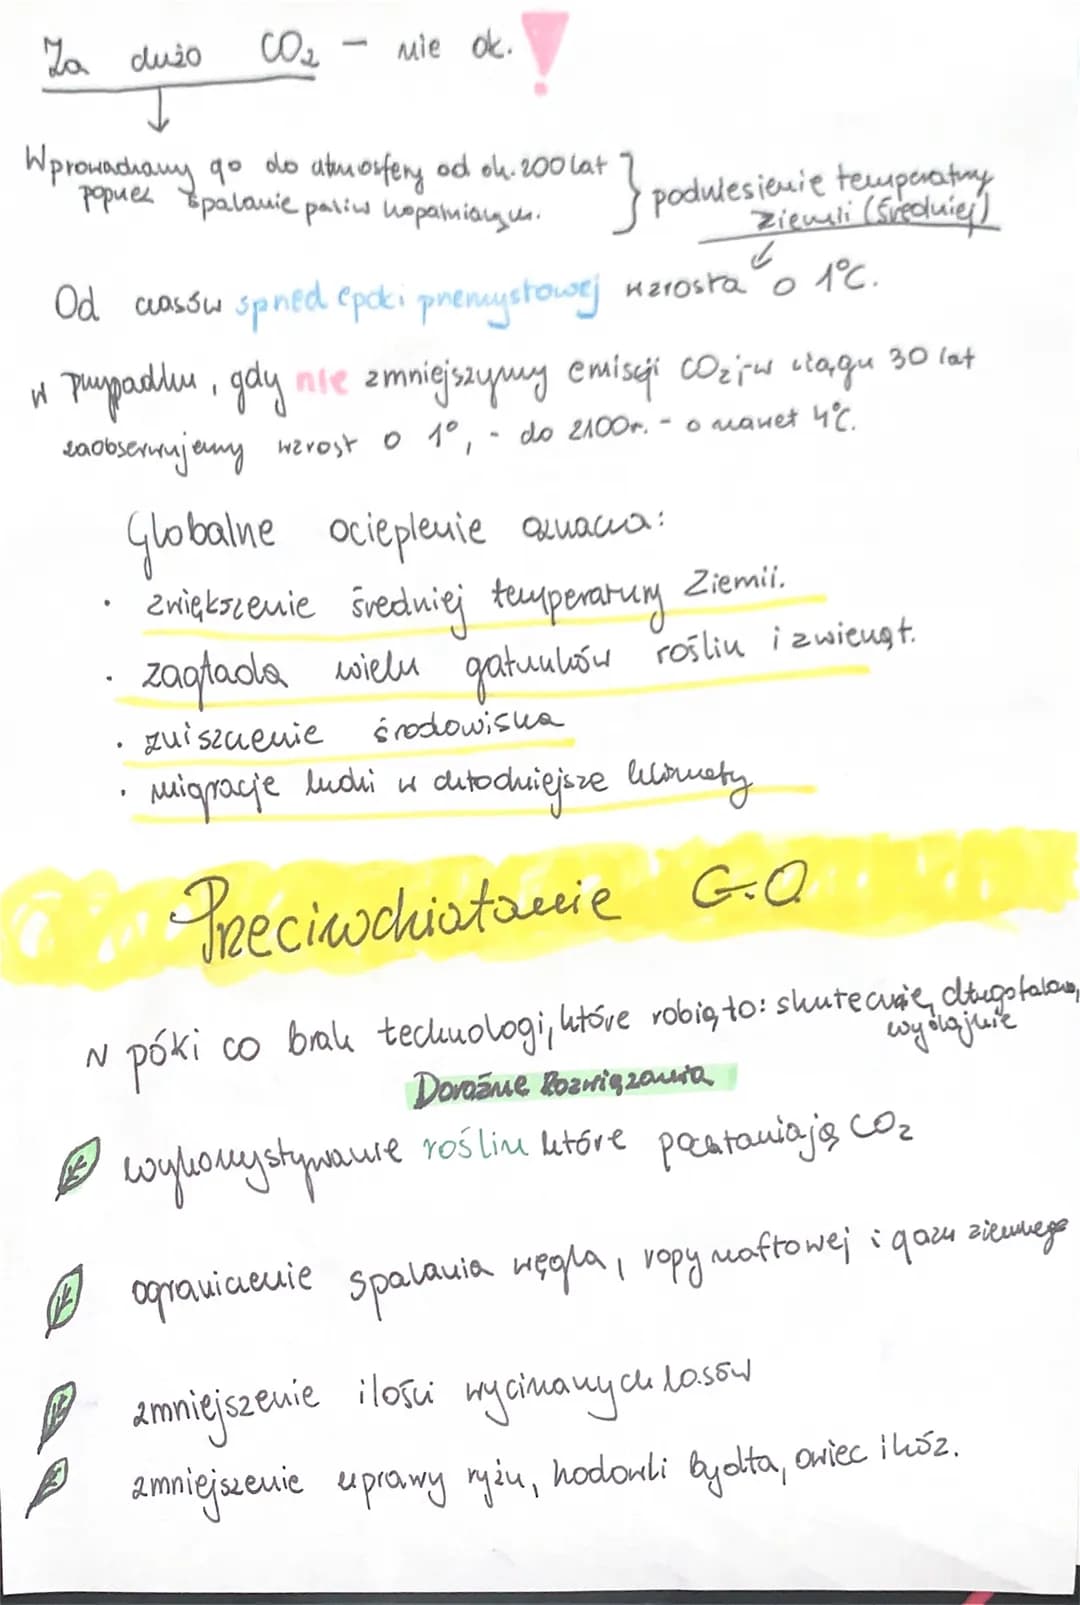 Za dużo CO₂ – nie ok. !
Wprowadzamy go do atmosfery od ok. 200 lat
poprzez spalanie paliw kopalnianych. } podniesienie temperatury
Ziemii (średniej)
Od czasów sprzed epoki przemysłowej wzrosła o 1°C.
w przypadku, gdy nie zmniejszymy emisji CO₂; -w ciągu 30 lat
zaobserwujemy wzrost o 1°, - do 2100r. - o nawet 4°C.
Globalne ocieplenie oznacza:
· zwiększenie średniej temperatury Ziemii.
· zagłada wielu gatunków roślin i zwierząt.
· zniszczenie środowiska
· migracje ludzi w chłodniejsze klimaty
Przeciwdziałanie G.O
N póki co brak technologi, które robią to: skutecznie, długofalowo,
wydajnie
Doraźne Rozwiązania
wykorzystywanie roślin które pochłaniają CO₂
ograniczenie spalania węgla, ropy naftowej i gazu ziemnego
zmniejszenie ilości wycinanych lasów
zmniejszenie uprawy ryżu, hodowli bydła, owiec i kóz.